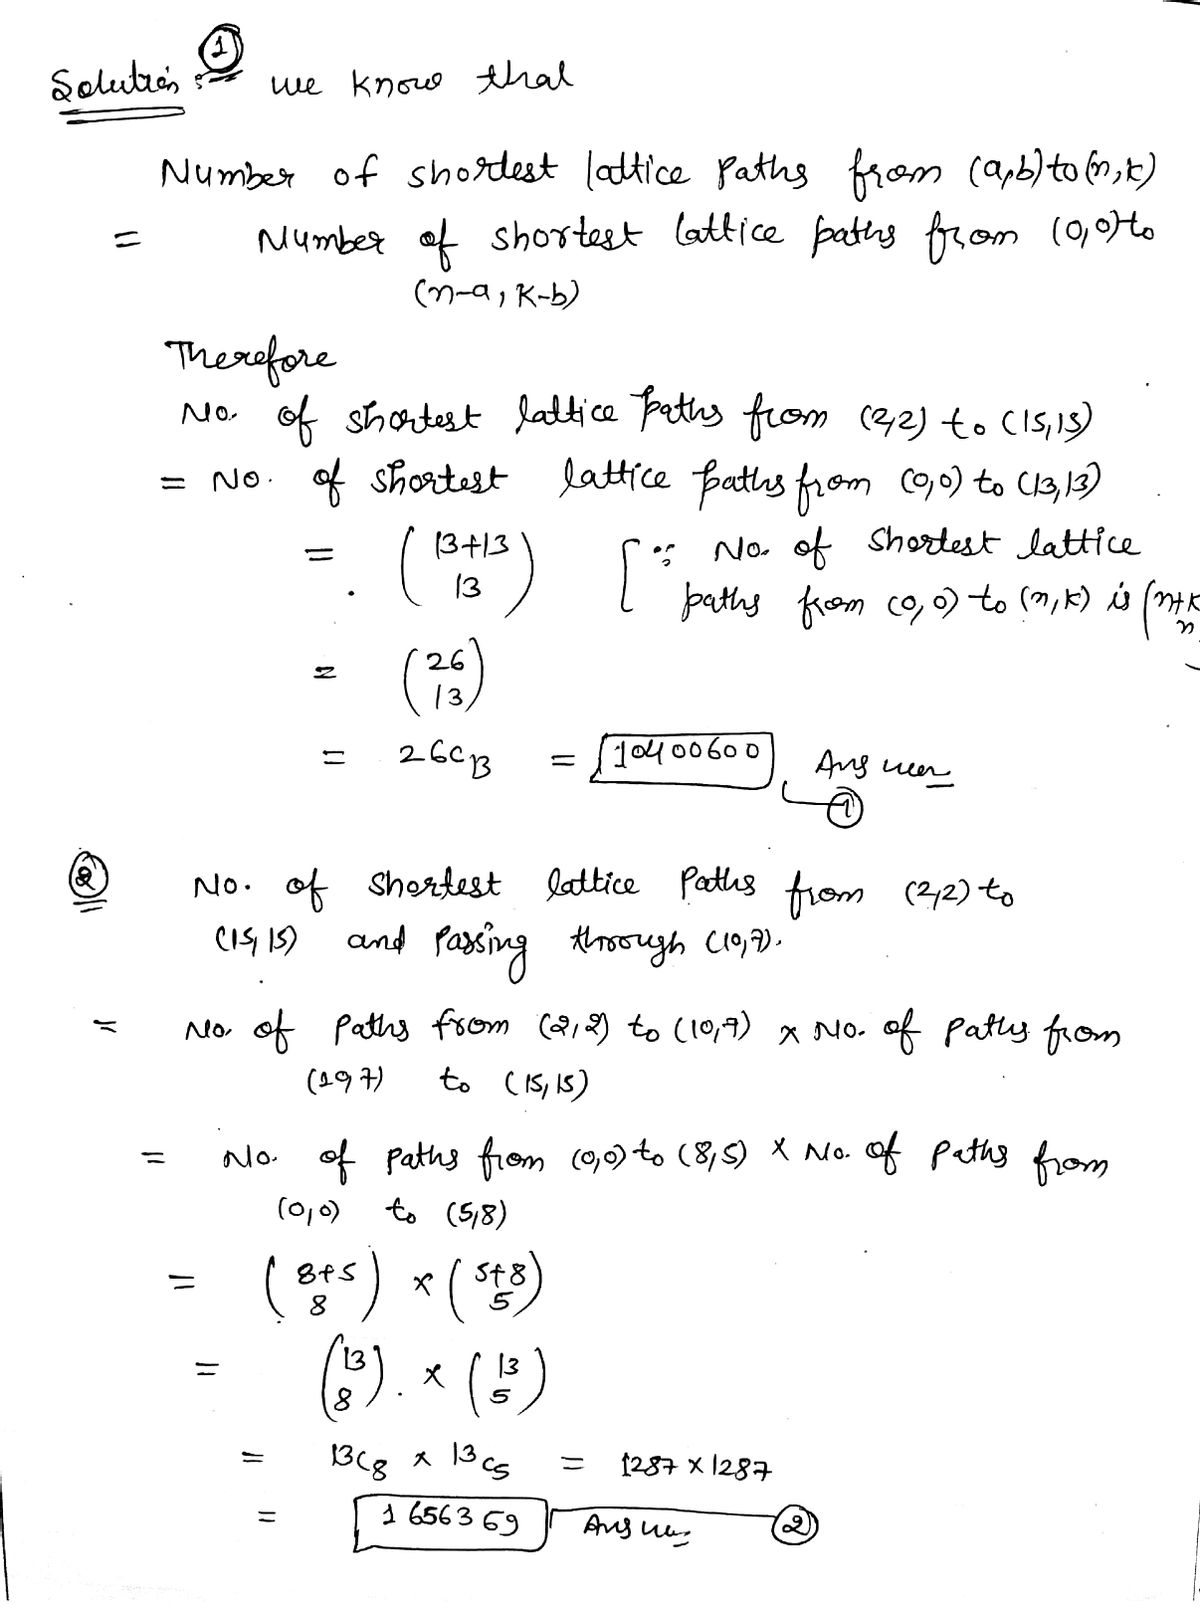 Solution :- ① we know that
Number of shortest lattice paths from (a,b) to (n,k)
= Number of shortest lattice paths from (0,0) to
(n-a, k-b)
Therefore
No. of shortest lattice paths from (2,2) to (15,15)
= No. of shortest lattice paths from (0,0) to (13,13)
= (13+13
13) [∵ No. of shortest lattice
paths from (0,0) to (n,k) is (n+k
n
= (26
13)
= 26C13 = 10400600 Answer
①
② No. of shortest lattice paths from (2,2) to
(15,15) and passing through (10,7).
= No. of paths from (2,2) to (10,7) × No. of paths from
(10,7) to (15,15)
= No. of paths from (0,0) to (8,5) × No. of paths from
(0,0) to (5,8)
= (8+5
8) × (5+8
5)
= (13
8) × (13
5)
= 13C8 × 13C5 = 1287 × 1287
= 1656369 Answer ②